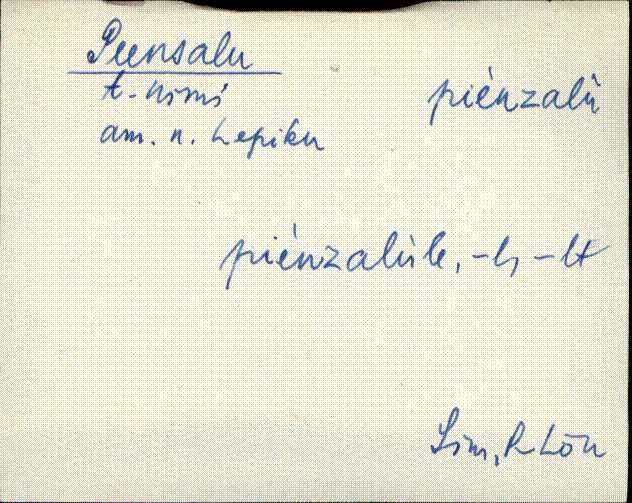 Peensalu
t. nimi
am. n. Lepiku
piènzalù
piènzalùle, -l, -lt
Sim, R Lõu